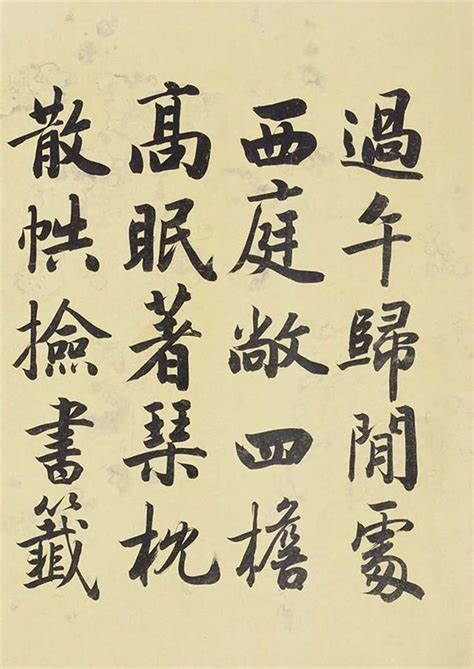 過午歸閒處
西庭敞四檐
高眠著琴枕
散帙撿書籤